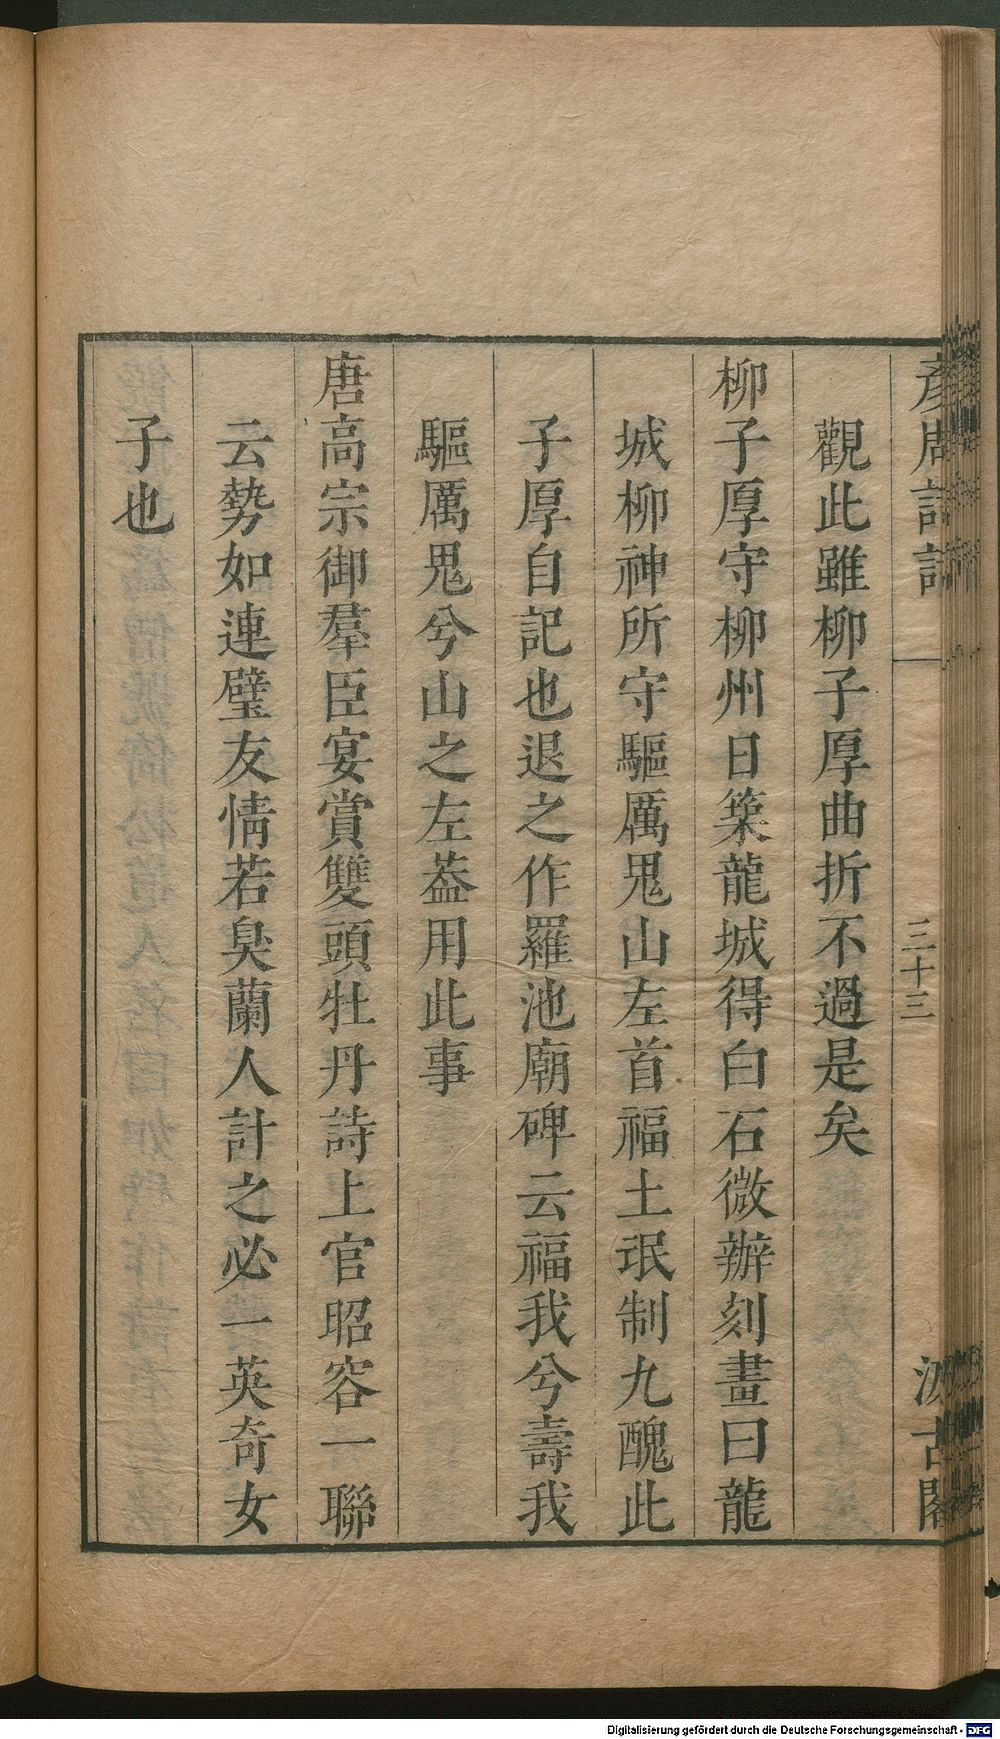 彥周詩話
三十三
汲古閣
觀此雖柳子厚曲折不過是矣
柳子厚守柳州日築龍城得白石微辦刻畫曰龍
城柳神所守驅厲鬼山左首福土氓制九醜此
子厚自記也退之作羅池廟碑云福我兮壽我
驅厲鬼兮山之左葢用此事
唐高宗御羣臣宴賞雙頭牡丹詩上官昭容一聯
云勢如連璧友情若臭蘭人計之必一英奇女
子也
Digitalisierung gefördert durch die Deutsche Forschungsgemeinschaft - DFG